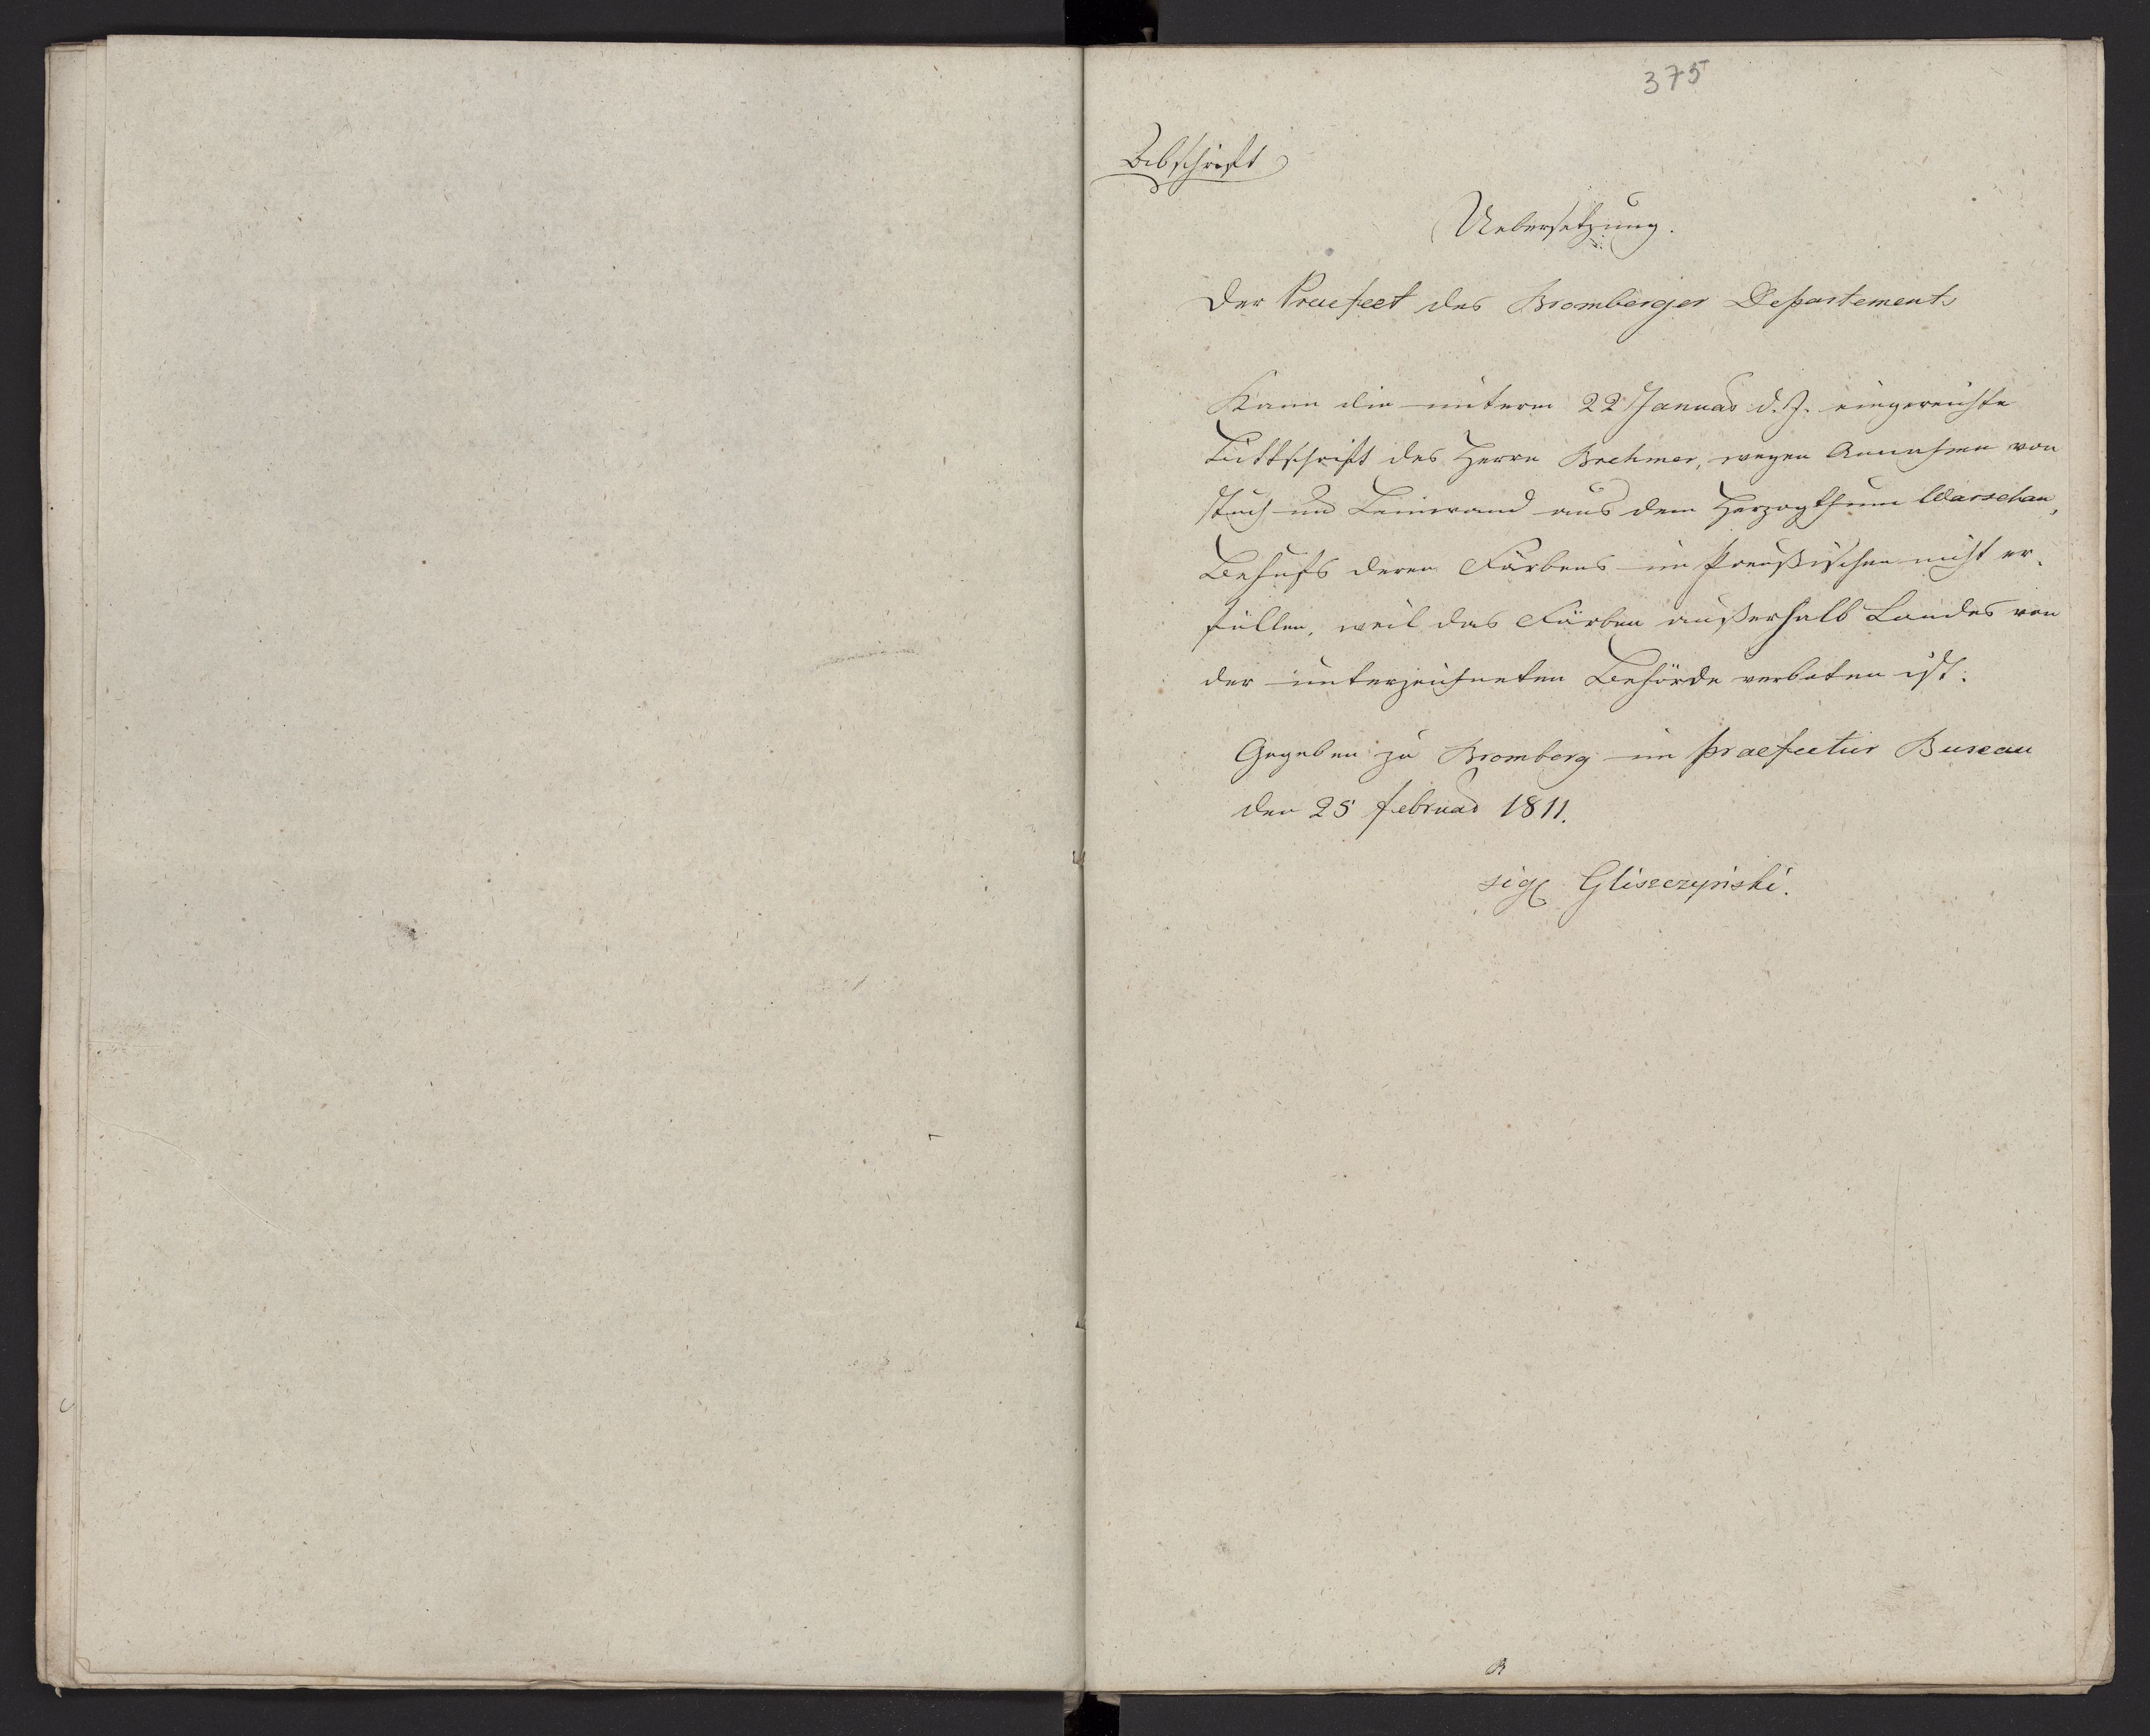 375
Abschrift
Uebersetzung.
Der Praefect des Bromberger Departements
Kann die unterm 22 Januar d. J. eingereichte
Bittschrift des Herrn Brehmer, wegen Annahme von
Tuch und Leinwand aus dem Herzogthum Warschau,
Behufs deren Färbens im Preußischen nicht er-
füllen, weil das Färben außerhalb Landes von
der unterzeichneten Behörde verboten ist.
Gegeben zu Bromberg im Praefectur Bureau
den 25 Februar 1811.
sig Gliszczyński.